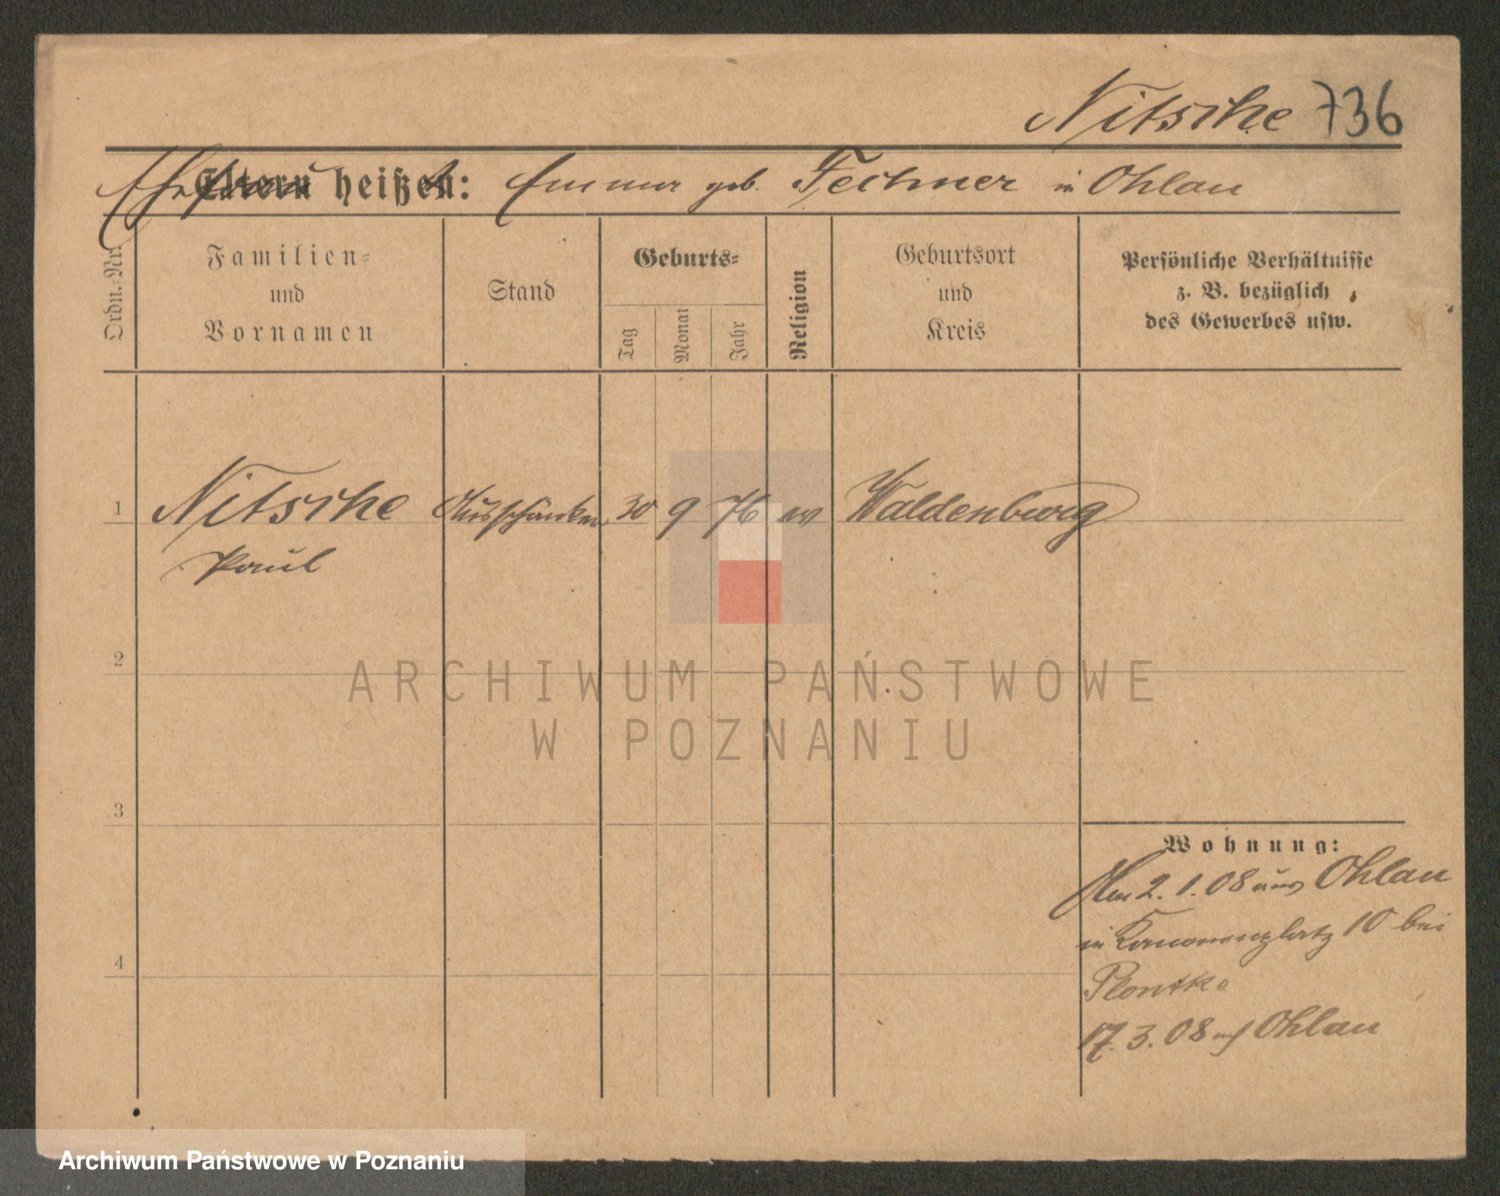 Nitsche 736
Ehefrau Eltern heißen: Emma geb. Fechner in Ohlau
Ordn.-Nr.
Familien-
und
Vornamen
Stand
Geburts-
Tag
Monat
Jahr
Religion
Geburtsort
und
Kreis
Persönliche Verhältnisse
z. B. bezüglich
des Gewerbes usw.
1 Nitsche 30 9 76 ev Waldenburg
Paul
2
ARCHIWUM PAŃSTWOWE
W POZNANIU
3
Wohnung:
Am 2.1.08 aus Ohlau
in Kanonenplatz 10 bei
4
Plontke
17.3.08 Ohlau
Archiwum Państwowe w Poznaniu